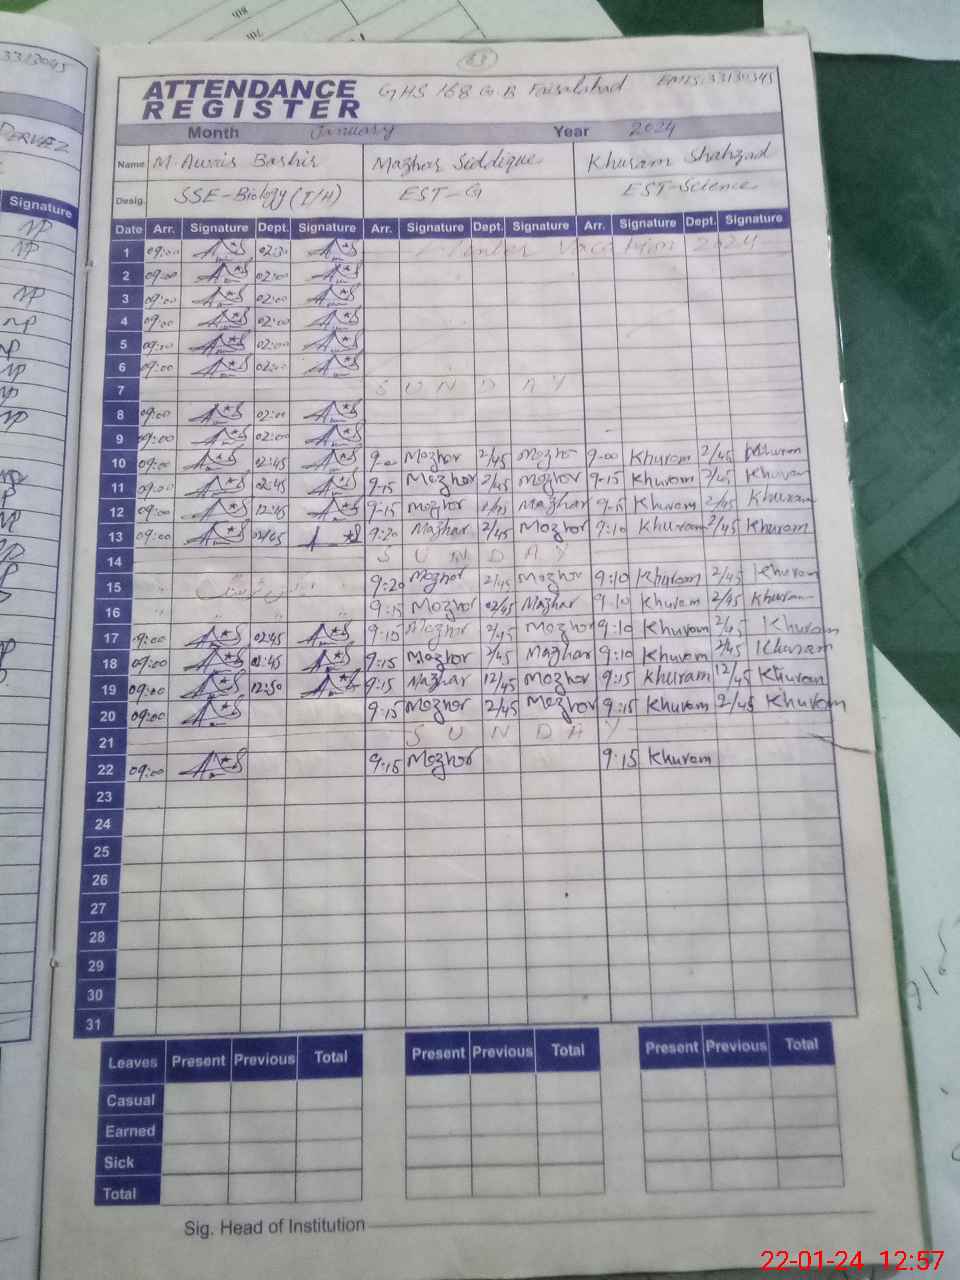 3313045
8th
7th
63
ATTENDANCE GHS 168 G.B Faisalabad EMIS:33130345
REGISTER
Month January Year 2024
Name M. Awais Bashir Mazhar Siddique Khuram Shahzad
Desig. SSE-Biology (I/H) EST-G EST-Science
Signature
Date Arr. Signature Dept. Signature Arr. Signature Dept. Signature Arr. Signature Dept. Signature
1 09:00 02:30 Winter Vacation 2024
2 09:00 02:00
3 09:00 02:00
4 09:00 02:00
5 09:00 02:00
6 09:00 02:00
7 SUNDAY
8 09:00 02:00
9 09:00 02:00
10 09:00 02:45 9-00 Mazhar 2/45 Mazhar 9-00 Khuram 2/45 Khuram
11 09:00 02:45 9-15 Mazhar 2/45 Mazhar 9-15 Khuram 2/45 Khuram
12 09:00 12:45 9-15 Mazhar Mazhar 9-15 Khuram Khuram
13 09:00 02:45 9:20 Mazhar 2/45 Mazhar 9:10 Khuram 2/45 Khuram
14 SUNDAY
15 9:20 Mazhar 2/45 Mazhar 9:10 Khuram 2/45 Khuram
16 9:15 Mazhar 02/45 Mazhar 9:10 Khuram 2/45 Khuram
17 09:00 02:45 9:15 Mazhar 2/45 Mazhar 9:10 Khuram 2/45 Khuram
18 09:00 02:45 9:15 Mazhar 2/45 Mazhar 9:10 Khuram 2/45 Khuram
19 09:00 12:50 9:15 Mazhar 12/45 Mazhar 9:15 Khuram 12/45 Khuram
20 09:00 9:15 Mazhar 2/45 Mazhar 9:15 Khuram 2/45 Khuram
21 SUNDAY
22 09:00 9:15 Mazhar 9:15 Khuram
23
24
25
26
27
28
29
30
31
Leaves Present Previous Total Present Previous Total Present Previous Total
Casual
Earned
Sick
Total
Sig. Head of Institution
22-01-24 12:57